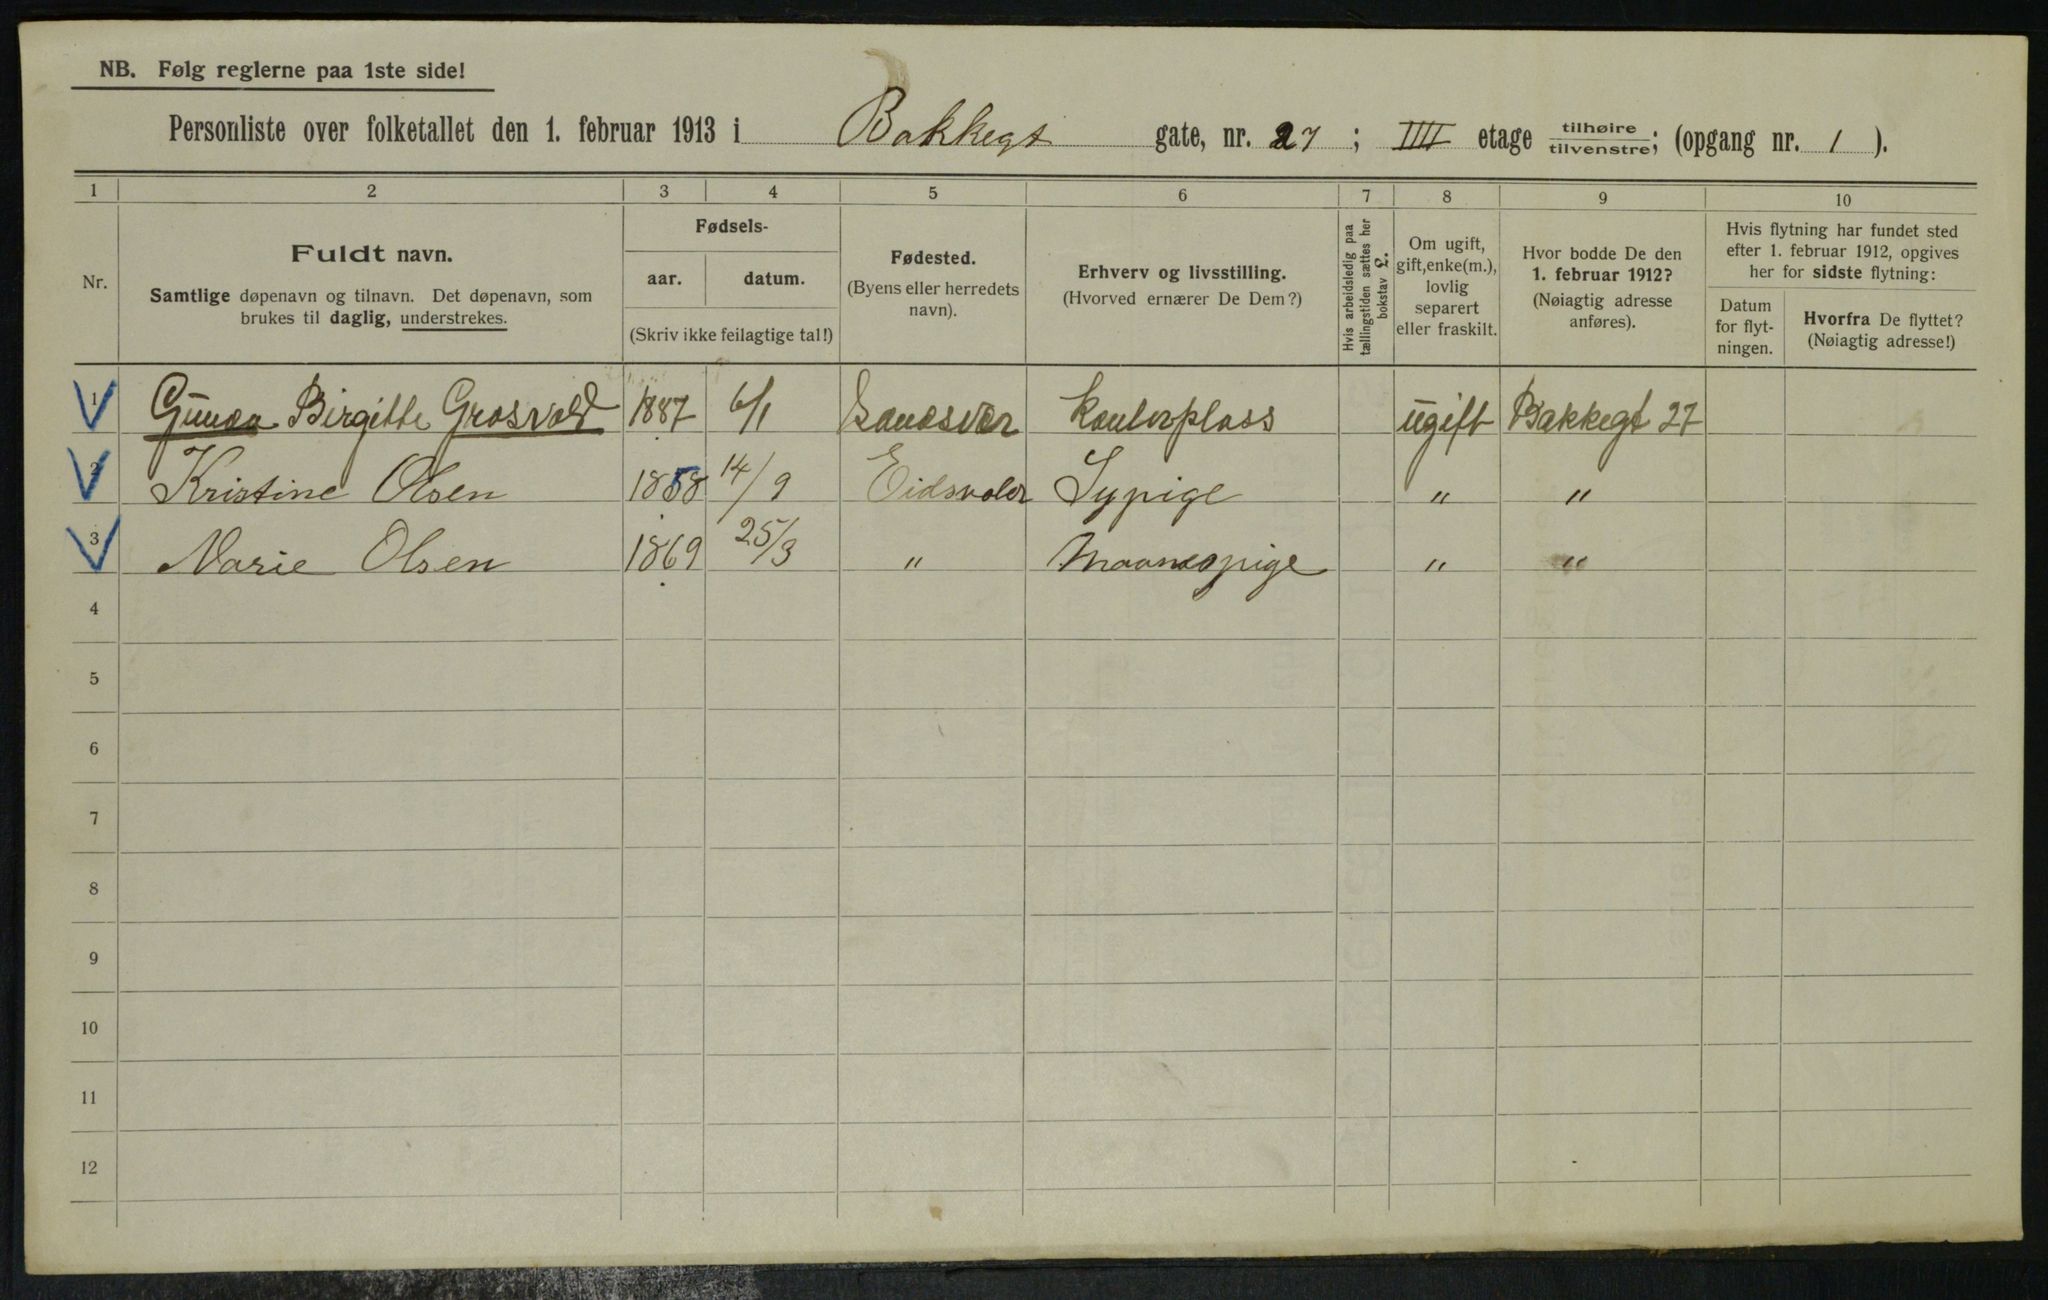 NB. Følg reglerne paa 1ste side!
Personliste over folketallet den 1. februar 1913 i Bakkegt gate, nr. 27; IIII etage tilhøire/tilvenstre; (opgang nr. 1).
1 2 3 4 5 6 7 8 9 10
Nr.
Fuldt navn.
Samtlige døpenavn og tilnavn. Det døpenavn, som
brukes til daglig, understrekes.
Fødsels-
aar. datum.
(Skriv ikke feilagtige tal!)
Fødested.
(Byens eller herredets
navn).
Erhverv og livsstilling.
(Hvorved ernærer De Dem?)
Hvis arbeidsledig paa
tællingstiden sættes her
bokstav L.
Om ugift,
gift, enke(m.),
lovlig
separert
eller fraskilt.
Hvor bodde De den
1. februar 1912?
(Nøiagtig adresse
anføres).
Hvis flytning har fundet sted
efter 1. februar 1912, opgives
her for sidste flytning:
Datum
for flyt-
ningen.
Hvorfra De flyttet?
(Nøiagtig adresse!)
1 Gunda Birgitte Grosvold 1887 6/1 Sandsvær ugift Bakkegt 27
2 Kristine Olsen 1858 14/9 Eidsvold Sypige " "
3 Marie Olsen 1869 25/3 " " "
4
5
6
7
8
9
10
11
12